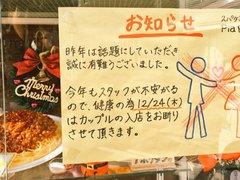 お知らせ
昨年は話題にしていただき
誠に有難うございました。
今年もスタッフが不安がる
ので、健康の為12/24(木)
はカップルの入店をお断り
させて頂きます。
Merry
Christmas